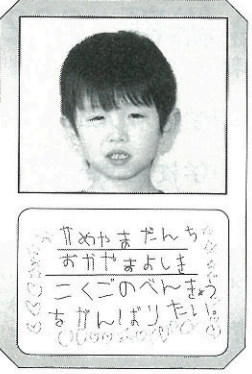 かめやまだんち
おかやまよしき
こくごのべんきょう
をがんばりたい。